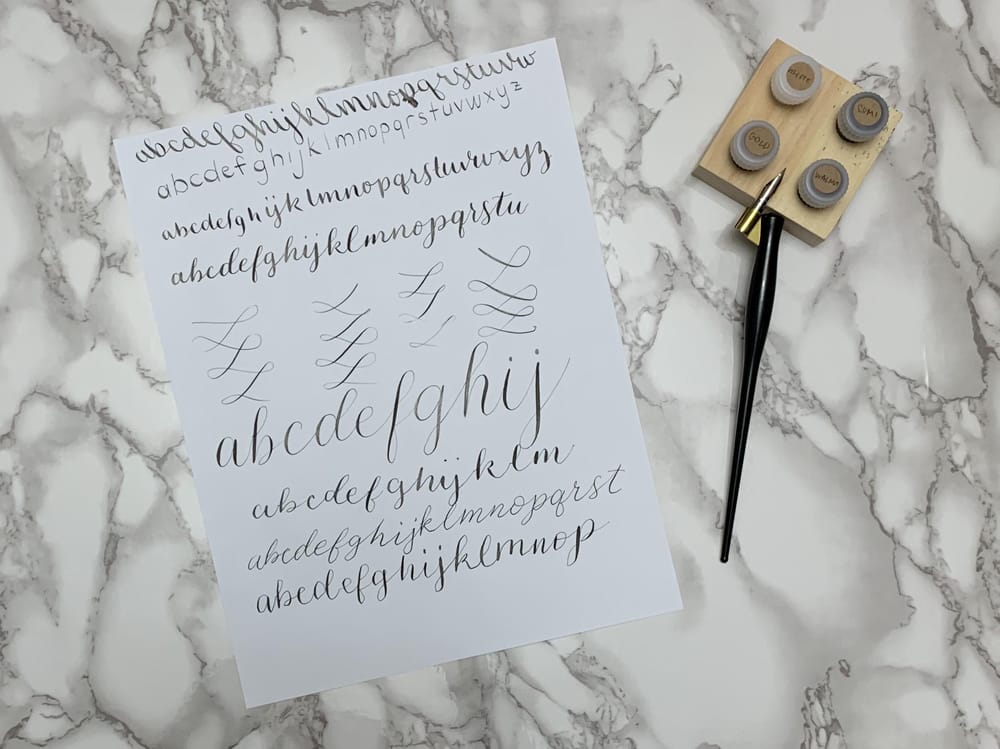 abcdefghijklmnopqrstuvw
abcdefghijklmnopqrstuvwxyz
abcdefghijklmnopqrstuvwxyz
abcdefghijklmnopqrstu
abcdefghij
abcdefghijklm
abcdefghijklmnopqrst
abcdefghijklmnop
WHITE
SUMI
GOLD
WALNUT